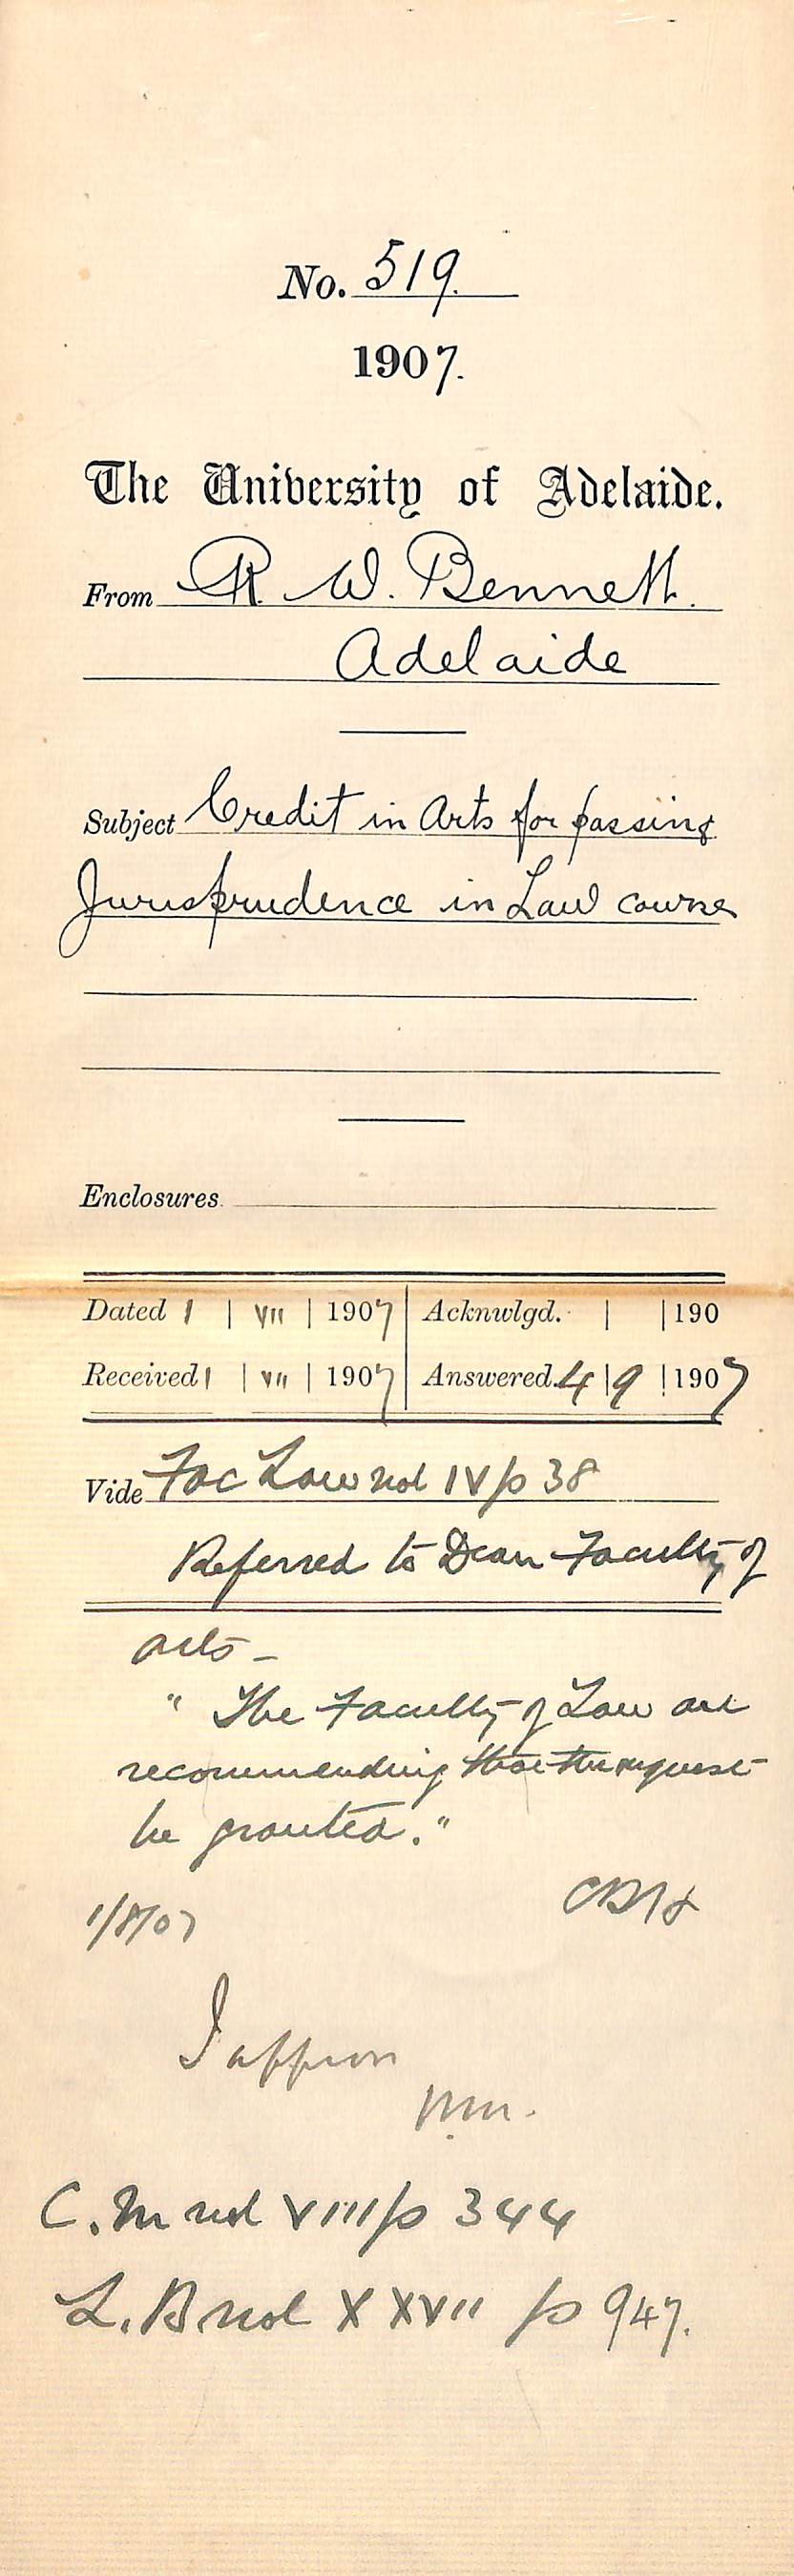 No. 519.
1907.
The University of Adelaide.
From R. W. Bennett.
Adelaide
Subject Credit in Arts for passing
Jurisprudence in Law course
Enclosures
Dated 1 | VII | 1907 | Acknwlgd. | | 190
Received 1 | VII | 1907 | Answered. 4 | 9 | 1907
Vide Fac Law vol IV p 38
Referred to Dean Faculty of
Arts –
" The Faculty of Law are
recommending that the request
be granted."
1/8/07
I approve
C.M vol VIII p 344
L.B vol XXVII p 947.